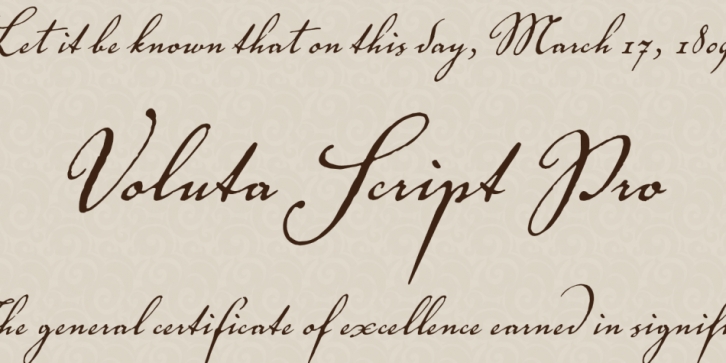 Let it be known that on this day, March 17, 1809
Voluta Script Pro
The general certificate of excellence earned in signif